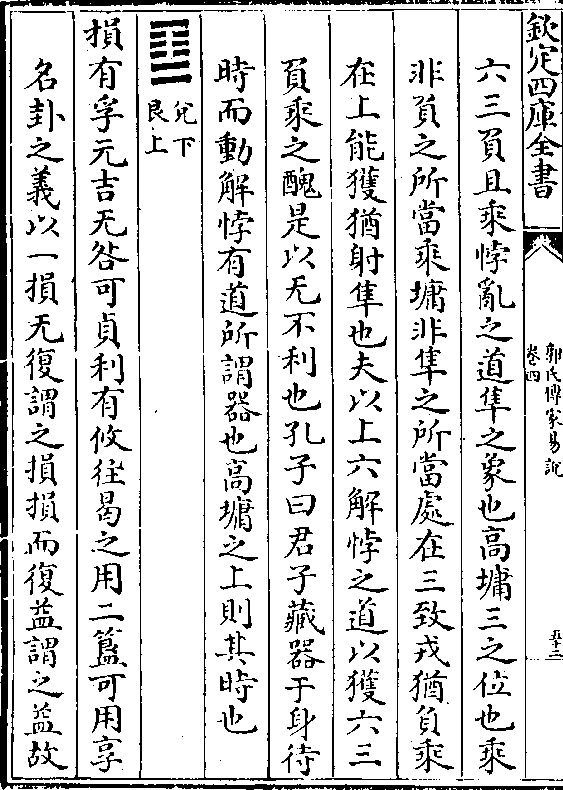 欽定四庫全書
郭氏傳家易說
卷四
五十二
六三負且乘悖亂之道隼之象也高墉三之位也乘
非負之所當乘墉非隼之所當處在三致戎猶負乘
在上能獲猶射隼也夫以上六解悖之道以獲六三
負乘之醜是以无不利也孔子曰君子藏器于身待
時而動解悖有道所謂器也高墉之上則其時也
䷨
兌下
艮上
損有孚元吉无咎可貞利有攸往曷之用二簋可用享
名卦之義以一損无復謂之損損而復益謂之益故